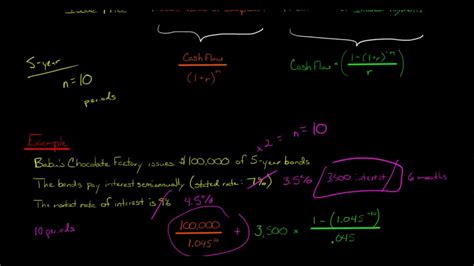 Issue Price
5-year
n=10
periods
Cash Flow
(1+r)^n
Cash Flow × (1-(1+r)^-n / r)
Example
x2 = n=10
Babin's Chocolate Factory issues $100,000 of 5-year bonds
The bonds pay interest semiannually (stated rate: 7%) 3.5% 3500 interest / 6 months
The market rate of interest is 9% 4.5%
10 periods
100,000 / 1.045^10 + 3,500 × 1-(1.045^-10) / .045